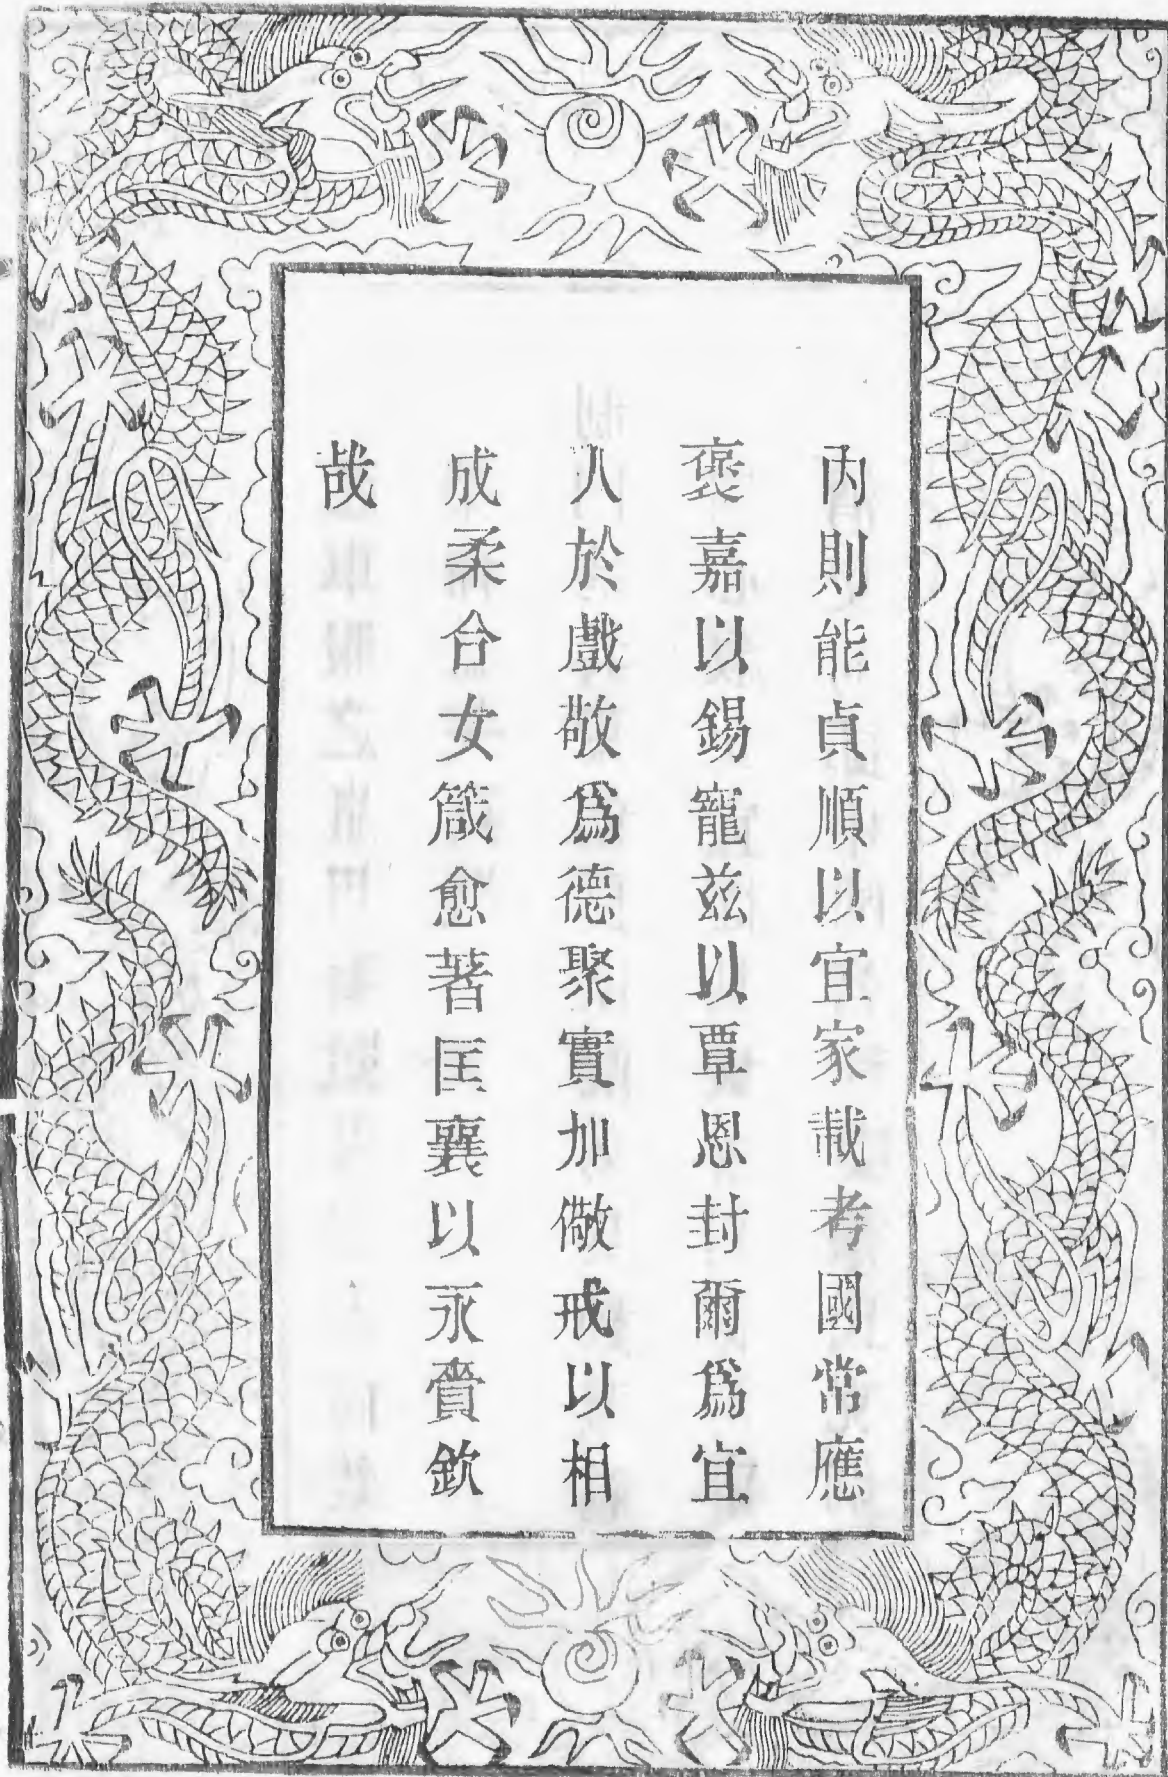 內則能貞順以宜家載考國常應
褒嘉以錫寵兹以覃恩封爾爲宜
人於戲敬爲德聚實加儆戒以相
成柔合女箴愈著匡襄以永賚欽
哉